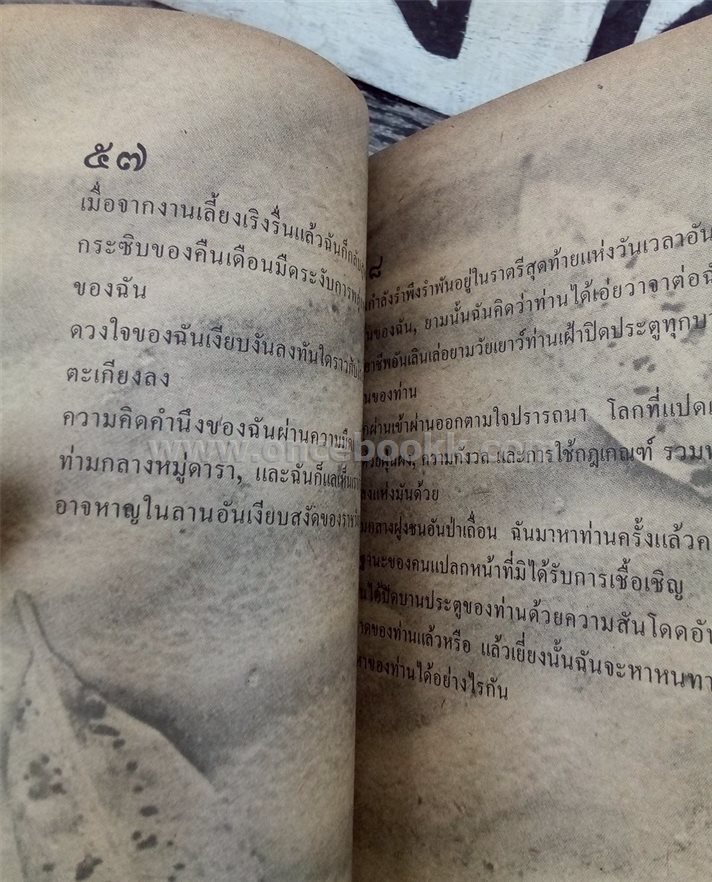 ๕๗
เมื่อจากงานเลี้ยงเริงรื่นแล้วฉันก็กลับ
กระซิบของคืนเดือนมืดระงับการ
ของฉัน
ดวงใจของฉันเงียบงันลงทันใดราวกับ
ตะเกียงลง
ความคิดคำนึงของฉันผ่านความมืด
ท่ามกลางหมู่ดารา, และฉันก็แลเห็น
อาจหาญในลานอันเงียบสงัดของ
๘
กำลังรำพึงรำพันอยู่ในราตรีสุดท้ายแห่งวันเวลาอัน
ของฉัน, ยามนั้นฉันคิดว่าท่านได้เอ่ยวาจาต่อ
อาชีพอันเลินเล่อยามวัยเยาว์ท่านเฝ้าปิดประตูทุก
ของท่าน
ผ่านเข้าผ่านออกตามใจปรารถนา โลกที่แปด
ความกังวล และการใช้กฎเกณฑ์ รวม
แห่งมันด้วย
กลางฝูงชนอันป่าเถื่อน ฉันมาหาท่านครั้งแล้ว
ฐานะของคนแปลกหน้าที่มิได้รับการเชื้อเชิญ
ได้ปิดบานประตูของท่านด้วยความสันโดดอัน
ของท่านแล้วหรือ แล้วเยี่ยงนั้นฉันจะหาหนทา
ของท่านได้อย่างไรกัน
www.oncebookk.com